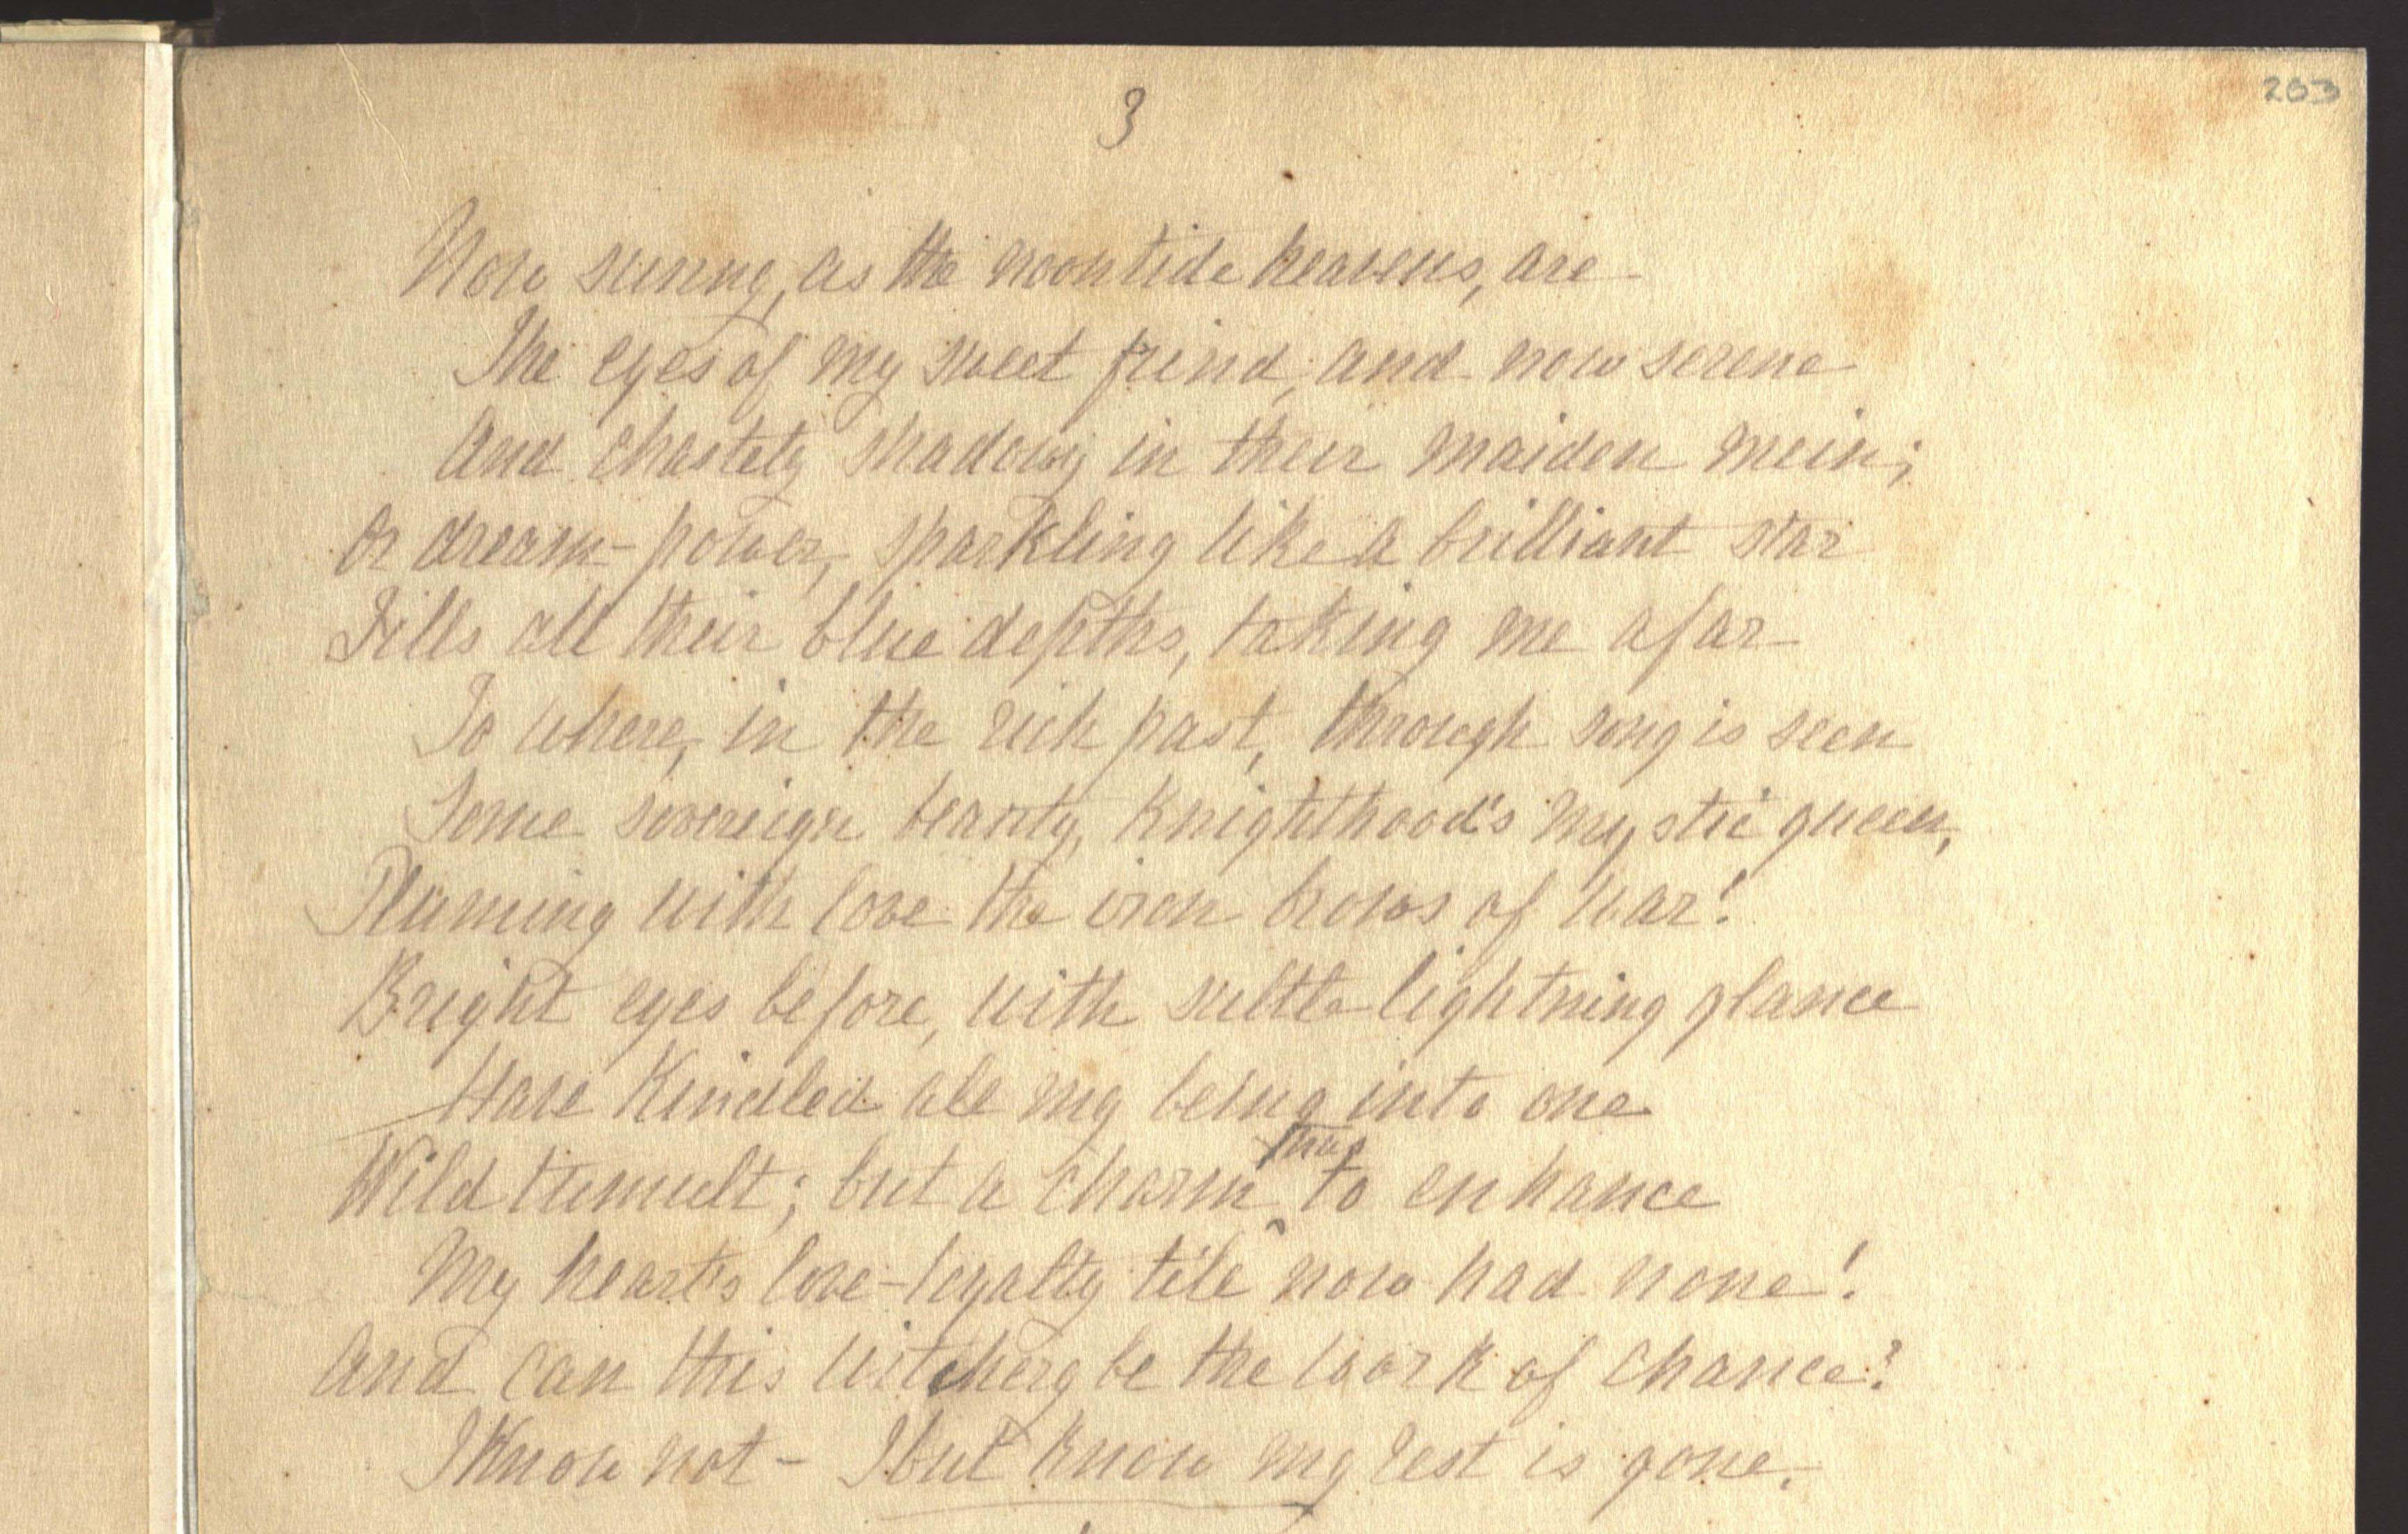 203
3
Now sunny, as the noontide heavens, are
The eyes of my sweet frind, and now serene
And chastely shadowy in their maiden mein;
Or dream-power, sparkling like a brilliant star
Fills all their blue depths, taking me afar
To where, in the rich past, through song is seen
Some sovereign beauty, knighthood's mystic queen,
Pluming with love the iron brows of war!
Bright eyes before, with subtle lightning glance
Have kindled all my being into one
thus
Wild tumult; but a charm ^ to enhance
My heart's love-loyalty till now had none!
And can this witchery be the work of chance?
I know not - I but know my rest is gone.